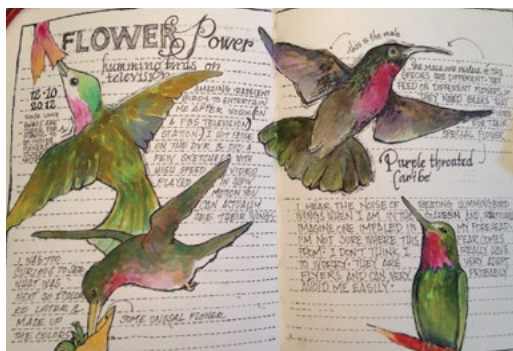 FLOWER Power
hummingbirds on
television
12-10
2012
AMAZING
BIRDS TO ENTERTAIN
ME AFTER WORK ON
A PBS TELEVISION
STATION. I HIT
ON THE DVR & DID A
FEW SKETCHES WITH
HIGH SPEED VIDEO
PLAYED IN SLOW
MOTION YOU
CAN ACTUALLY
SEE THEIR WINGS
I WAS TOO
CURIOUS TO SEE
WHAT WAS
NEXT SO I COLOR
ED LATER &
MADE UP
THE COLORS
SOME UNUSUAL FLOWER
this is the male
THE MALE AND FEMALE OF THIS
SPECIES ARE DIFFERENT & YET
FEED ON DIFFERENT FLOWERS SO
THEY NEED BEAKS THAT
SPECIAL FLOWER
Purple throated
Caribe
I HEAR THE NOISE OF BEATING HUMMINGBIRD
WINGS WHEN I AM IN THE GARDEN AND
IMAGINE ONE IMPALED IN MY FOREHEAD
I'M NOT SURE WHERE THIS FEAR COMES
FROM & I DON'T THINK I REALLY HAVE
TO WORRY. THEY ARE VERY ADEPT
FLYERS AND CAN VERY PROBABLY
AVOID ME EASILY.